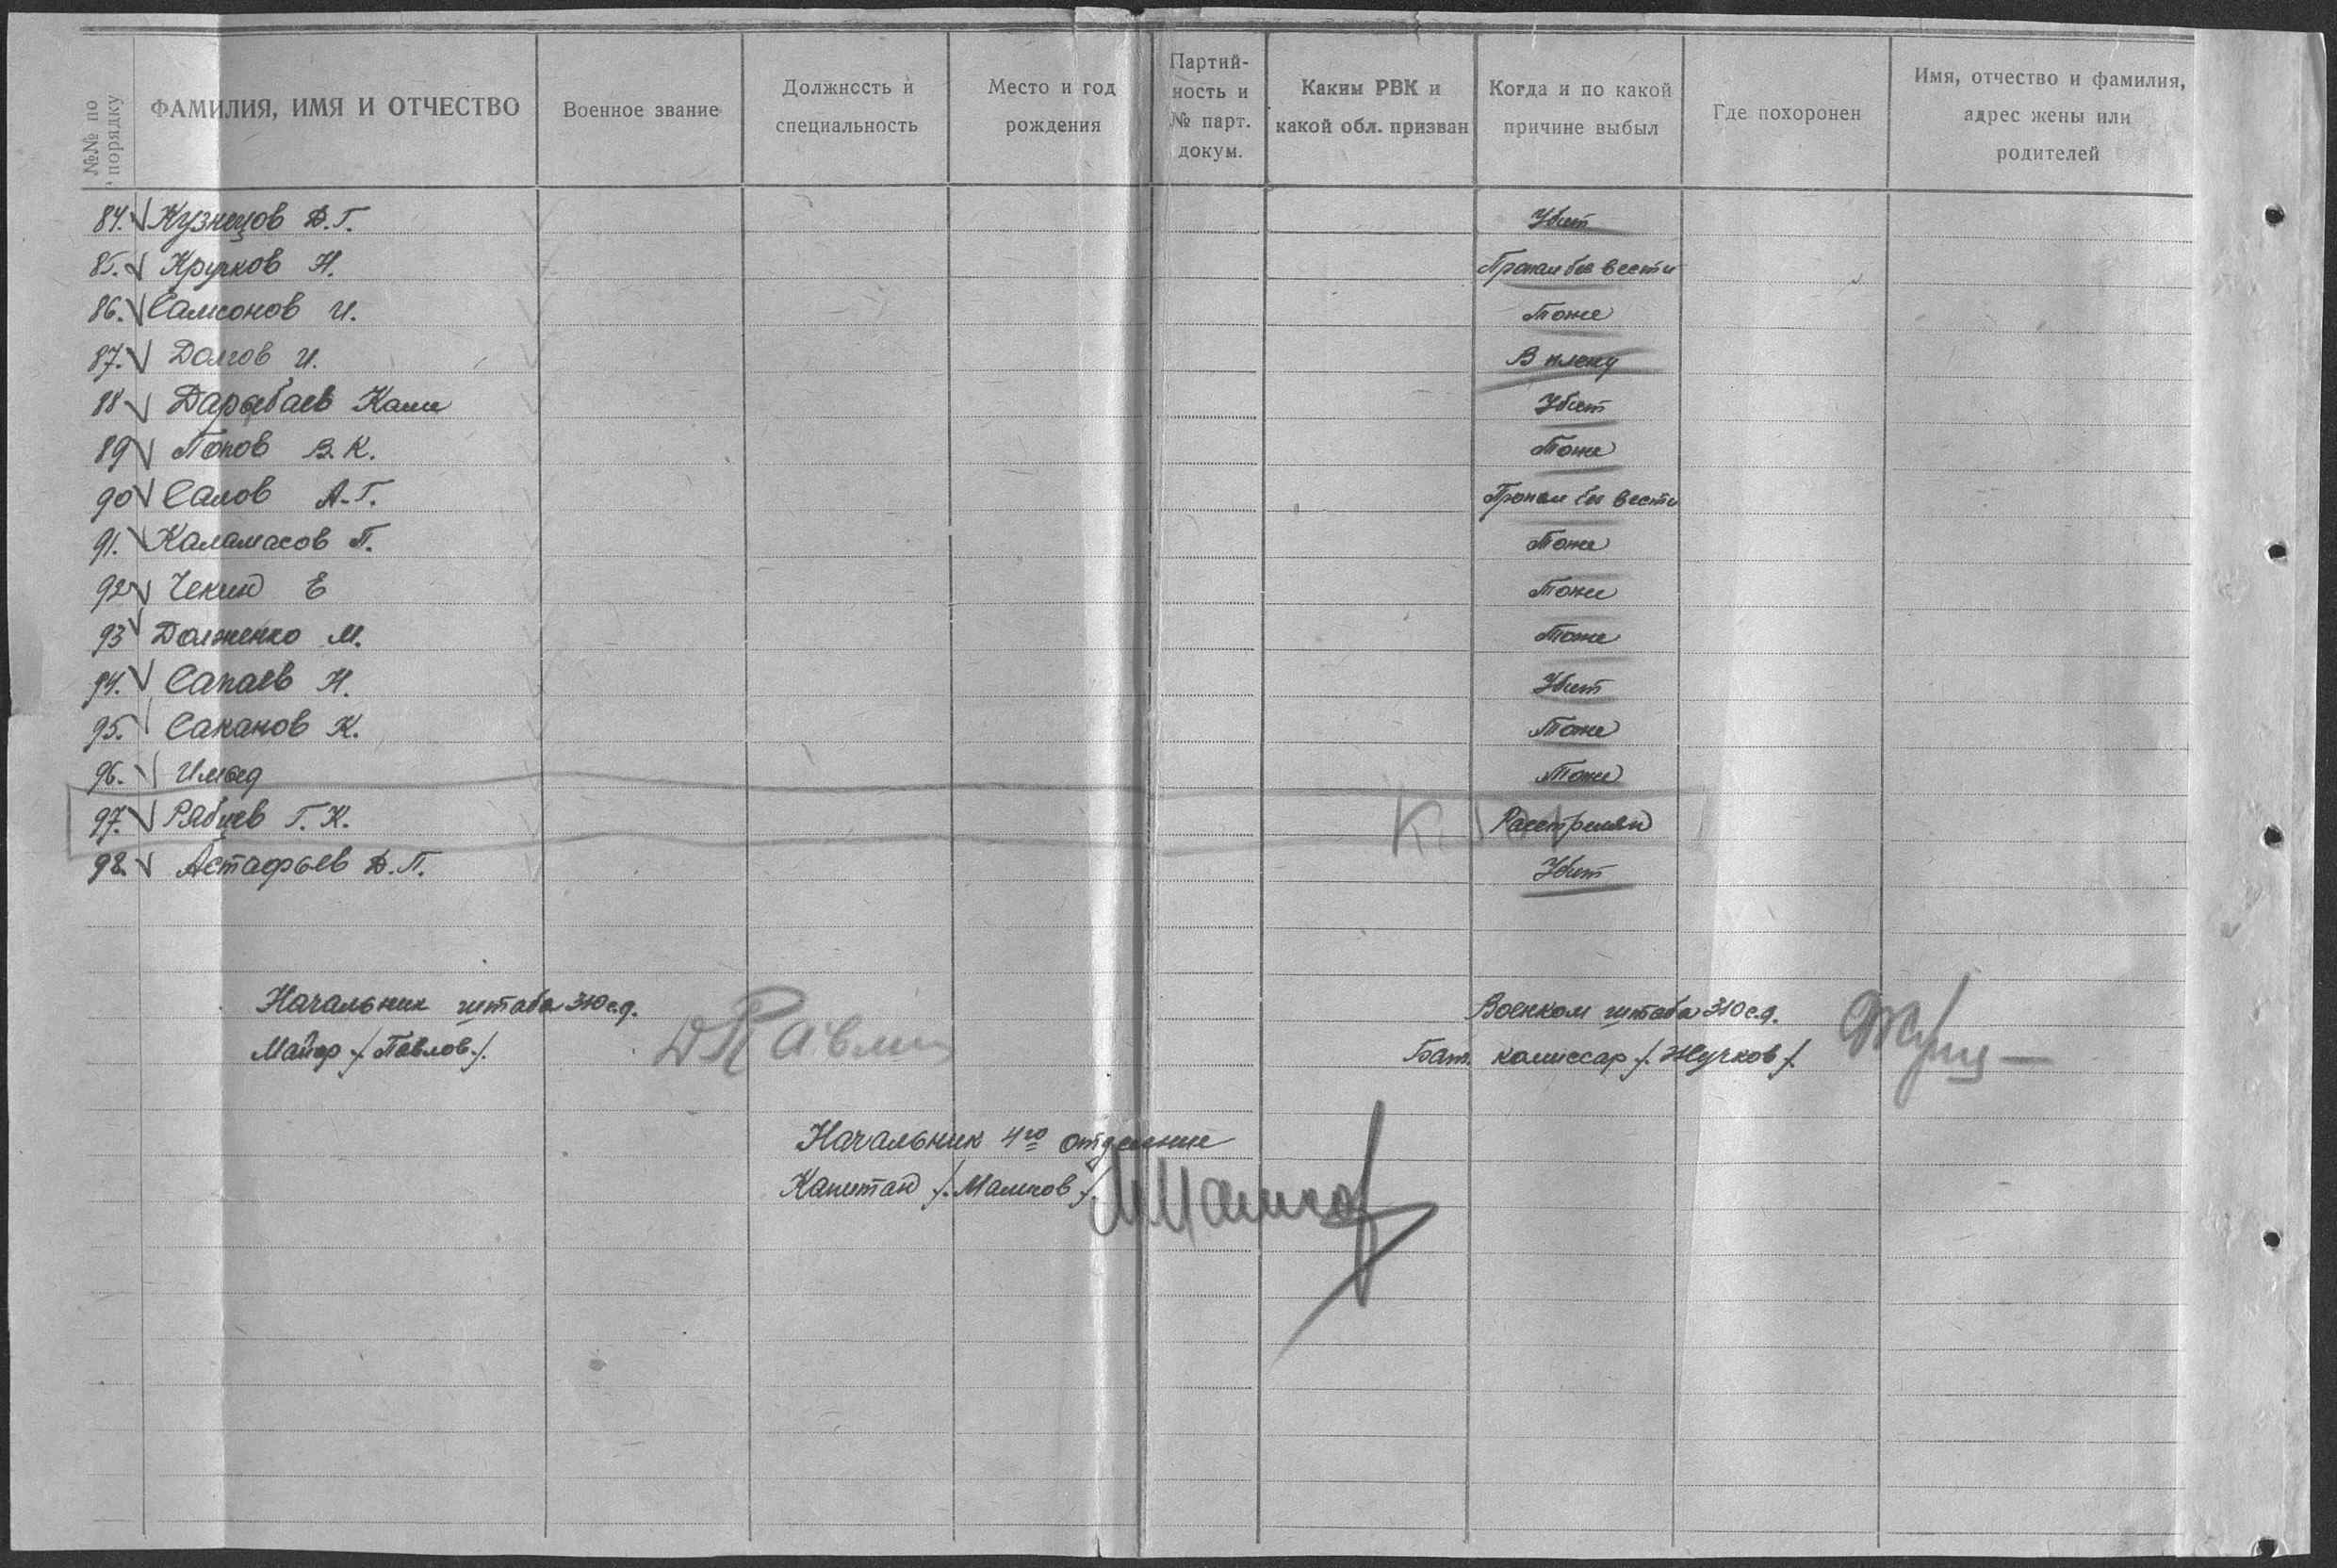 №№ по порядку
ФАМИЛИЯ, ИМЯ И ОТЧЕСТВО
Военное звание
Должность и специальность
Место и год рождения
Партий-ность и № парт. докум.
Каким РВК и какой обл. призван
Когда и по какой причине выбыл
Где похоронен
Имя, отчество и фамилия, адрес жены или родителей
84. Кузнецов Д.Г. Убит
85. Кручков Н. Пропал без вести
86. Самсонов И. Тоже
87. Долгов И. В плену
88 Дарыбаев Каши Убит
89 Попов В.К. Тоже
90 Салов А.Г. Пропал без вести
91. Каламасов П. Тоже
92 Чекин Е Тоже
93 Долженко М. Тоже
94. Сапаев Н. Убит
95. Саканов К. Тоже
96. Имад Тоже
97. Рябцев Г.К. Расстрелян
98. Астафьев Д.П. Убит
Начальник штаба 310 с.д.
Майор /.Павлов./
Военком штаба 310 с.д.
Бат. комиссар /.Жучков/.
Начальник 4го отделения
Капитан /.Машков/.